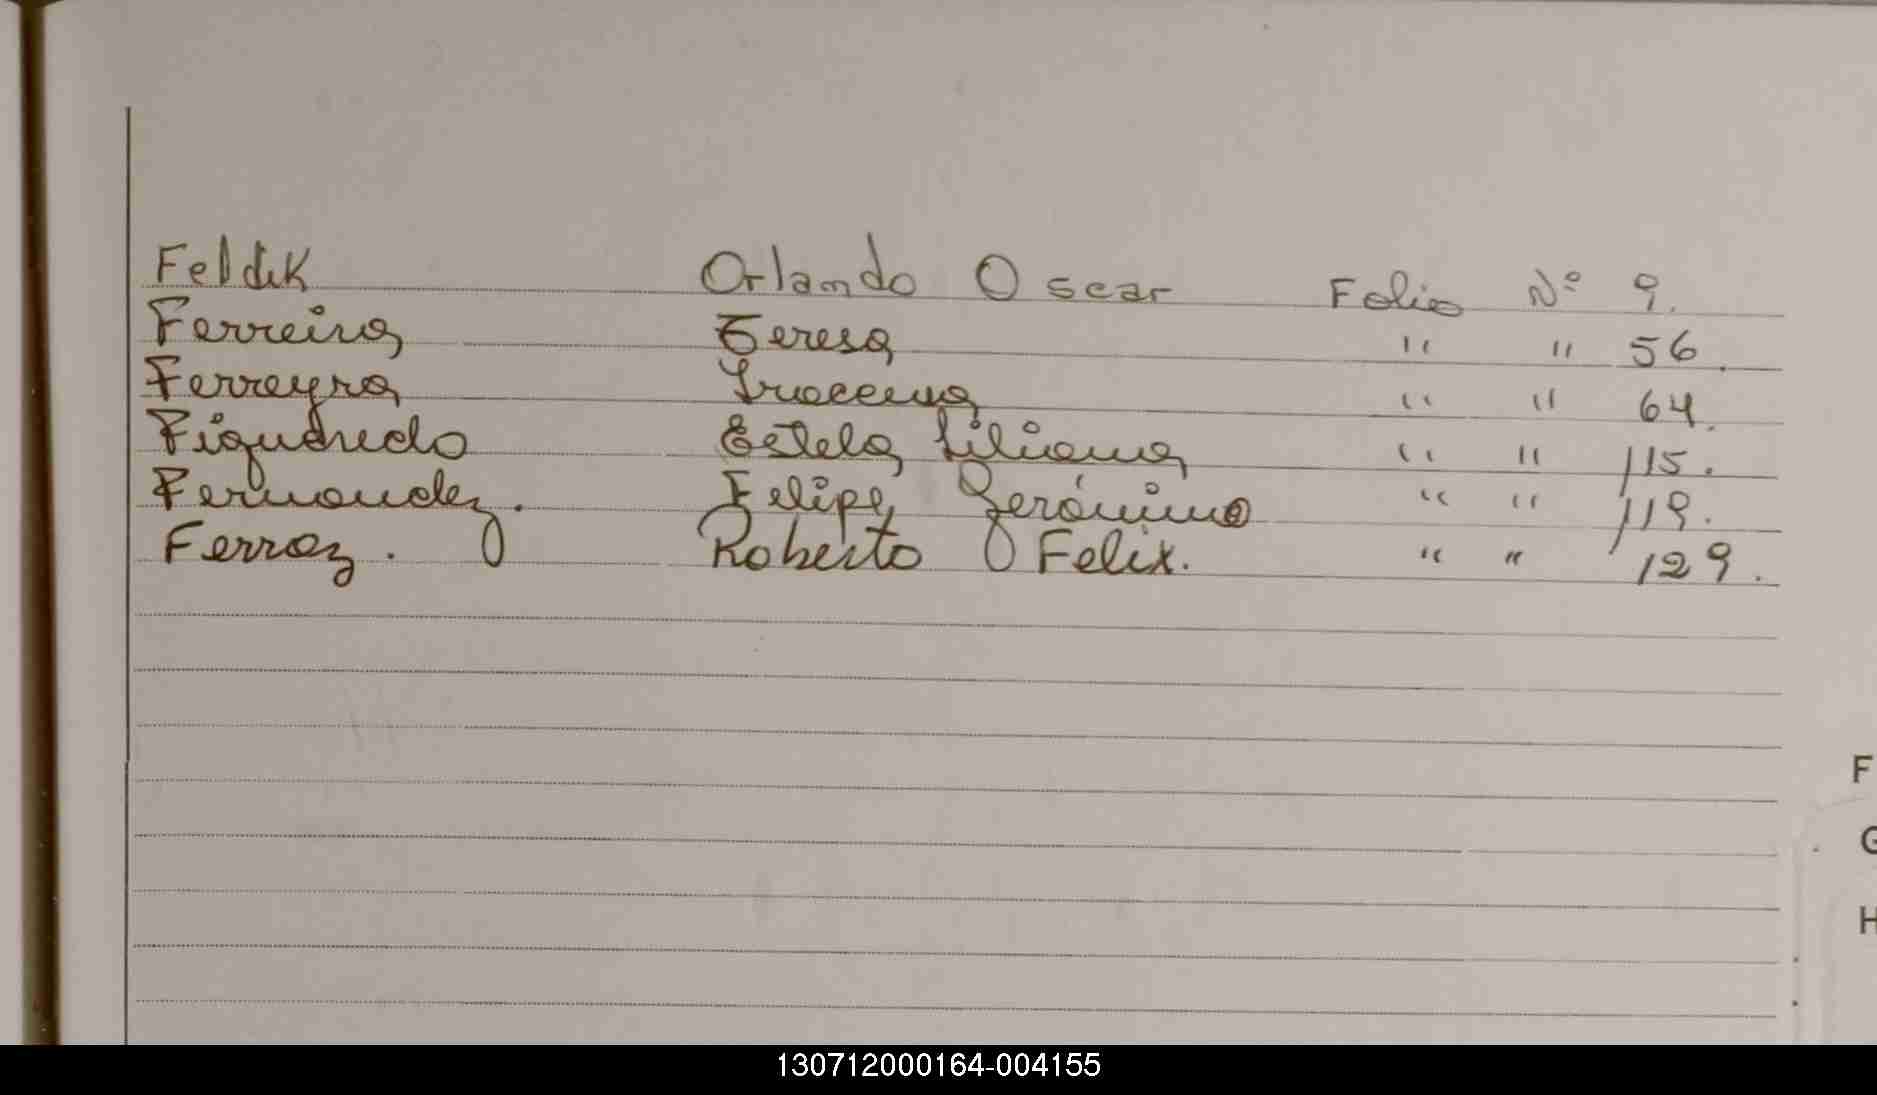 Feldik Orlando Oscar Folio Nº 9.
Ferreira Teresa " " 56.
Ferreyra " " 64.
Figueredo Estela Liliana " " 115.
Fernandez. Felipe Gerónimo " " 119.
Ferraz. Roberto Felix. " " 129.
F
G
H
130712000164-004155